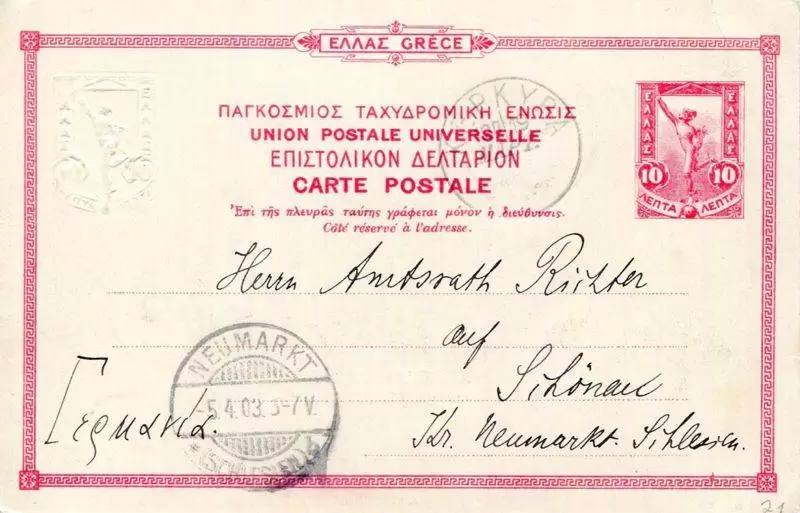 ΕΛΛΑΣ GRÈCE
ΠΑΓΚΟΣΜΙΟΣ ΤΑΧΥΔΡΟΜΙΚΗ ΕΝΩΣΙΣ
UNION POSTALE UNIVERSELLE
ΕΠΙΣΤΟΛΙΚΟΝ ΔΕΛΤΑΡΙΟΝ
CARTE POSTALE
Ἐπὶ τῆς πλευρᾶς ταύτης γράφεται μόνον ἡ διεύθυνσις.
Côté réservé à l'adresse.
ΚΕΡΚΥΡΑ
ΕΛΛΑΣ ΕΛΛΑΣ
10 10
ΛΕΠΤΑ ΛΕΠΤΑ
Herrn Amtsrath Richter
auf
Schönau
Kr. Neumarkt. Schlesien.
Γερμανία.
NEUMARKT
-5.4.03. 3-7V.
(SCHLESIEN)
21